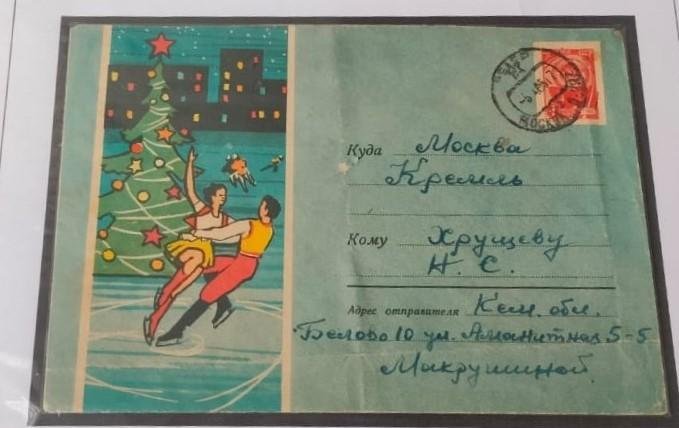 МОСКВА
Куда Москва
Кремль
Кому Хрущеву
Н. С.
Адрес отправителя Кем. обл.
Белово 10 ул. 5-5
Макрушиной